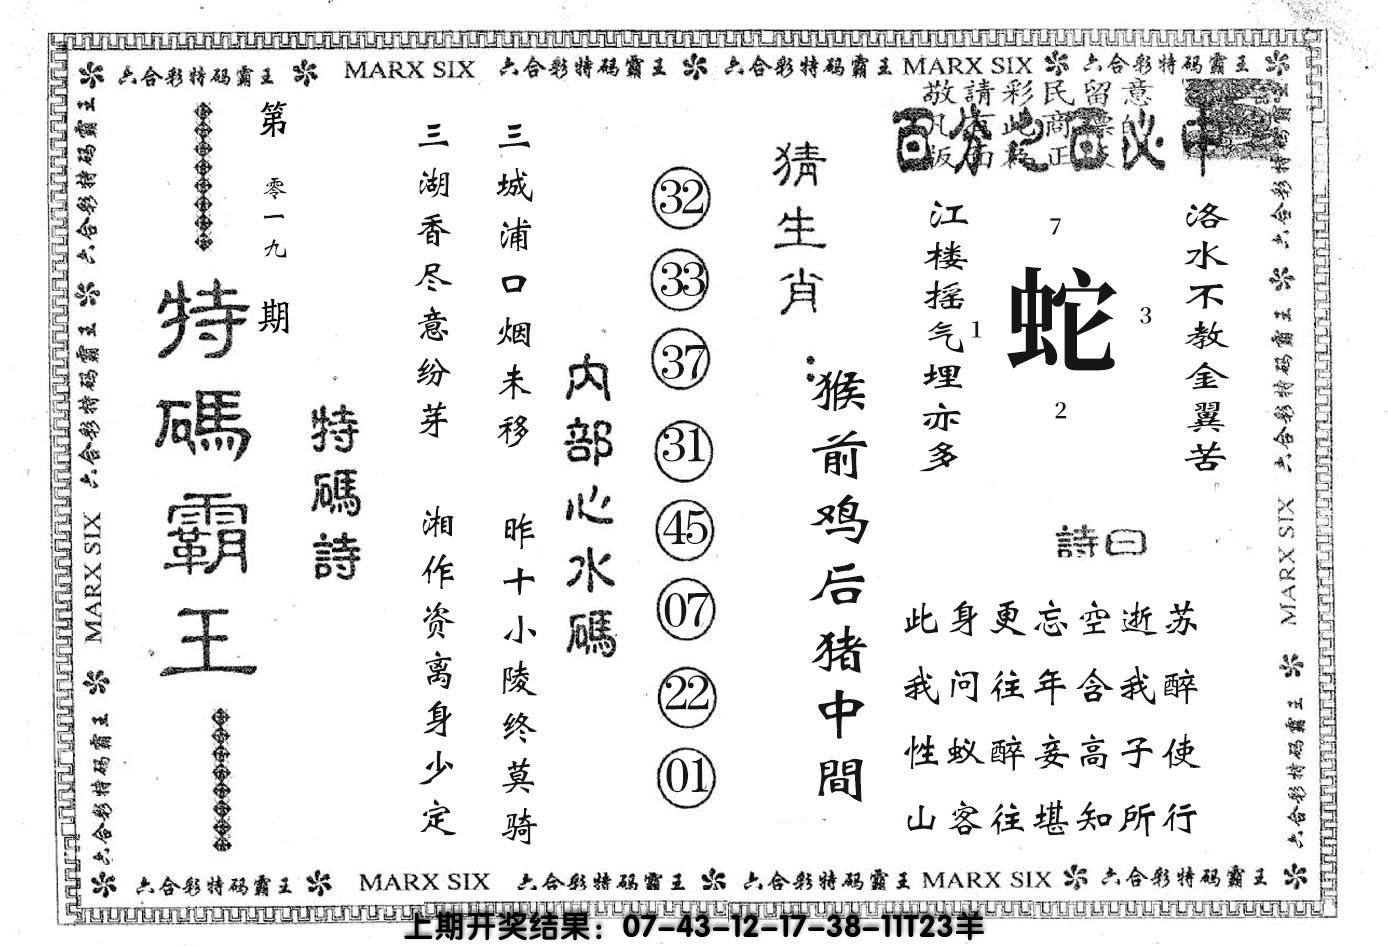 六合彩特码霸王 MARX SIX 六合彩特码霸王 六合彩特码霸王 MARX SIX 六合彩特码霸王
敬請彩民留意
百分之百必中
洛水不教金翼苦
江楼摇气埋亦多
7
1 蛇 3
2
詩曰
此身更忘空逝苏
我问往年含我醉
性蚁醉妾高子使
山客往堪知所行
猜生肖：
猴前鸡后猪中間
32
33
37
31
45
07
22
01
内部心水碼
三城浦口烟未移
昨十小陵终莫骑
三湖香尽意纷芽
湘作资离身少定
特碼詩
第零一九期
特碼霸王
六合彩特码霸王 六合彩特码霸王 MARX SIX 六合彩特码霸王
六合彩特码霸王 六合彩特码霸王 MARX SIX 六合彩特码霸王
六合彩特码霸王 MARX SIX 六合彩特码霸王 六合彩特码霸王 MARX SIX 六合彩特码霸王
上期开奖结果：07-43-12-17-38-11T23羊